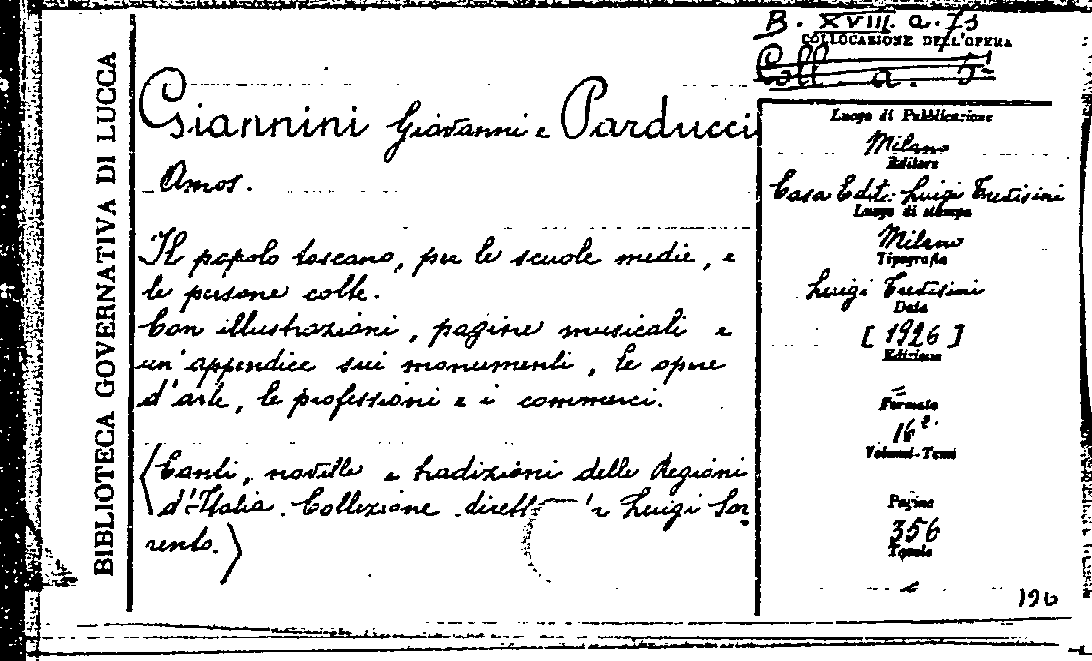 BIBLIOTECA GOVERNATIVA DI LUCCA
B. XVIII. a. 73
COLLOCAZIONE DELL'OPERA
Coll a. 5
Giannini Giovanni e Parducci
Amos.
Il popolo toscano, per le scuole medie, e
le persone colte.
Con illustrazioni, pagine musicali e
un'appendice sui monumenti, le opere
d'arte, le professioni e i commerci.
(Canti, novelle e tradizioni delle Regioni
d'Italia. Collezione Luigi Sor
rento.)
Luogo di Pubblicazione
Milano
Editore
Casa Edit: Luigi Trevisini
Luogo di stampa
Milano
Tipografia
Luigi Trevisini
Data
[1926]
Edizione
Formato
16º
Volumi-Tomi
Pagine
356
Tavole